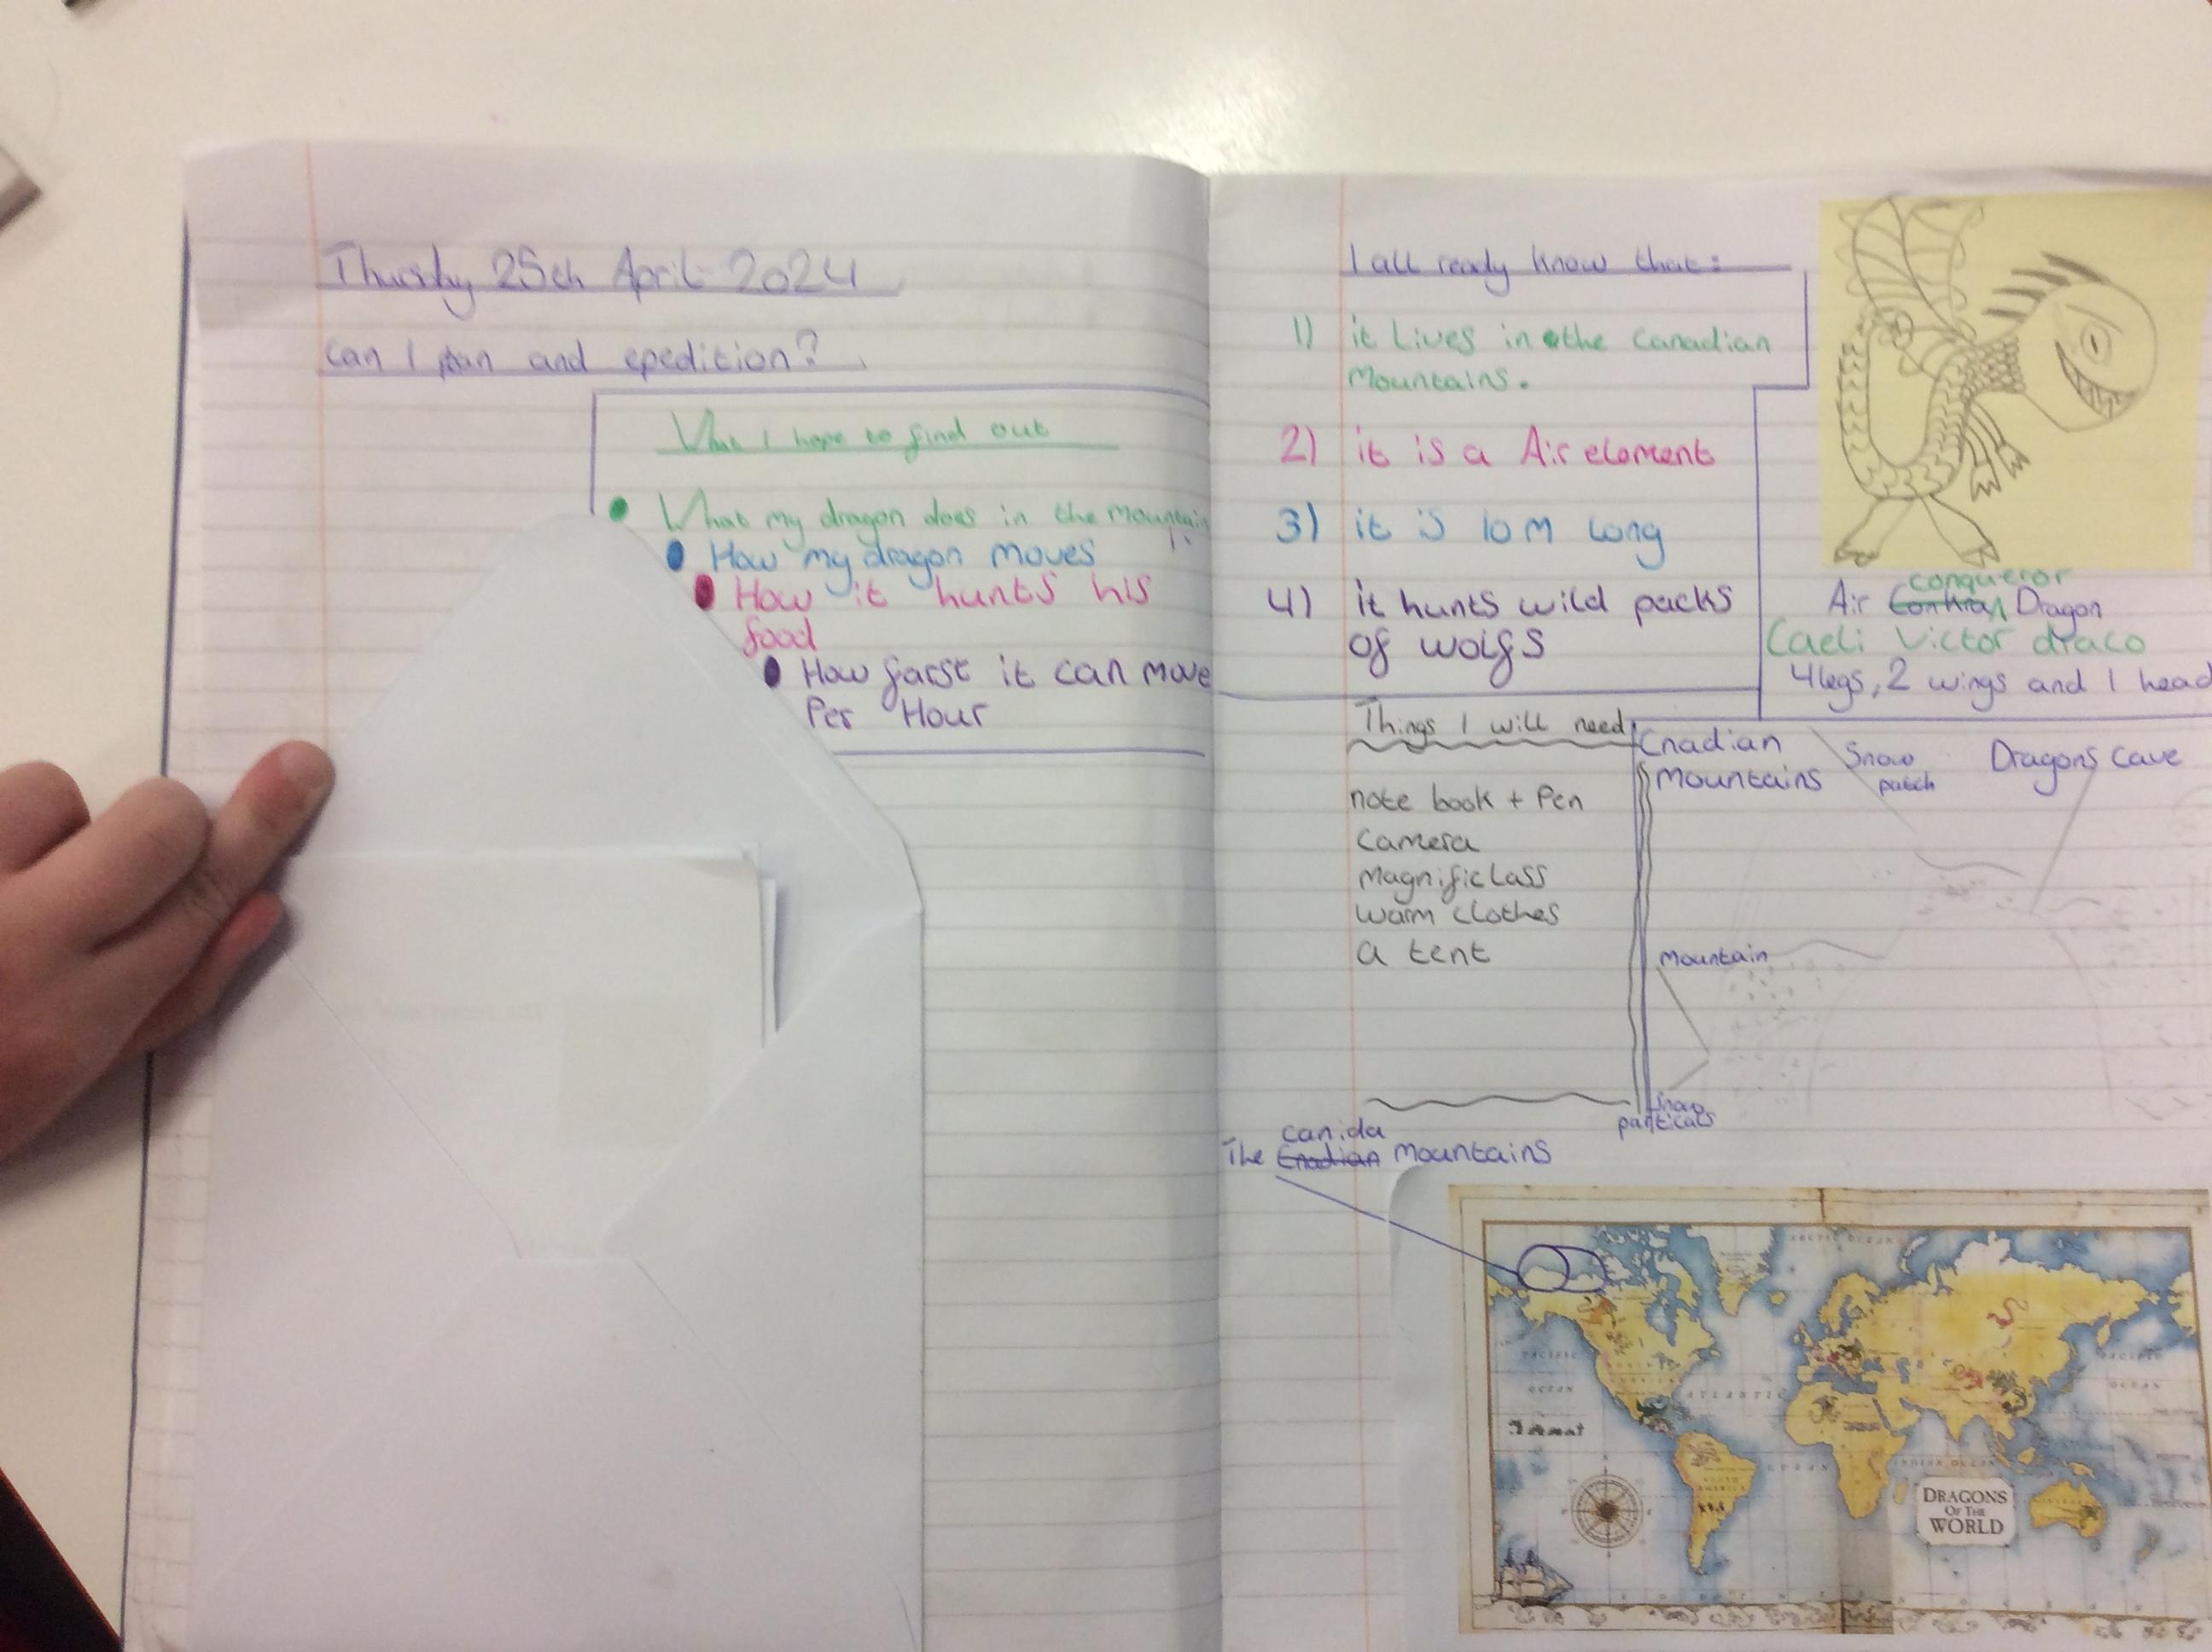 Thursday 25th April 2024
can I plan and epedition?
What I hope to find out
What my dragon does in the mountain
How my dragon moves
How it hunts his
food
How farst it can move
Per Hour
I all ready know that:
1) it Lives in the Canadian
Mountains.
2) it is a Air element
3) it is 10 M Long
4) it hunts wild packs
of wolfs
conqueror
Air Dragon
Caeli Victor draco
4 legs, 2 wings and 1 head
Things I will need
note book + Pen
Camera
Magnificlass
warm clothes
a tent
Cnadian
Mountains
Snow
patch
Dragons cave
Mountain
Snow
particals
canida
The Cnadian Mountains
ARCTIC OCEAN
PACIFIC
OCEAN
ATLANTIC
INDIAN OCEAN
DRAGONS
OF THE
WORLD